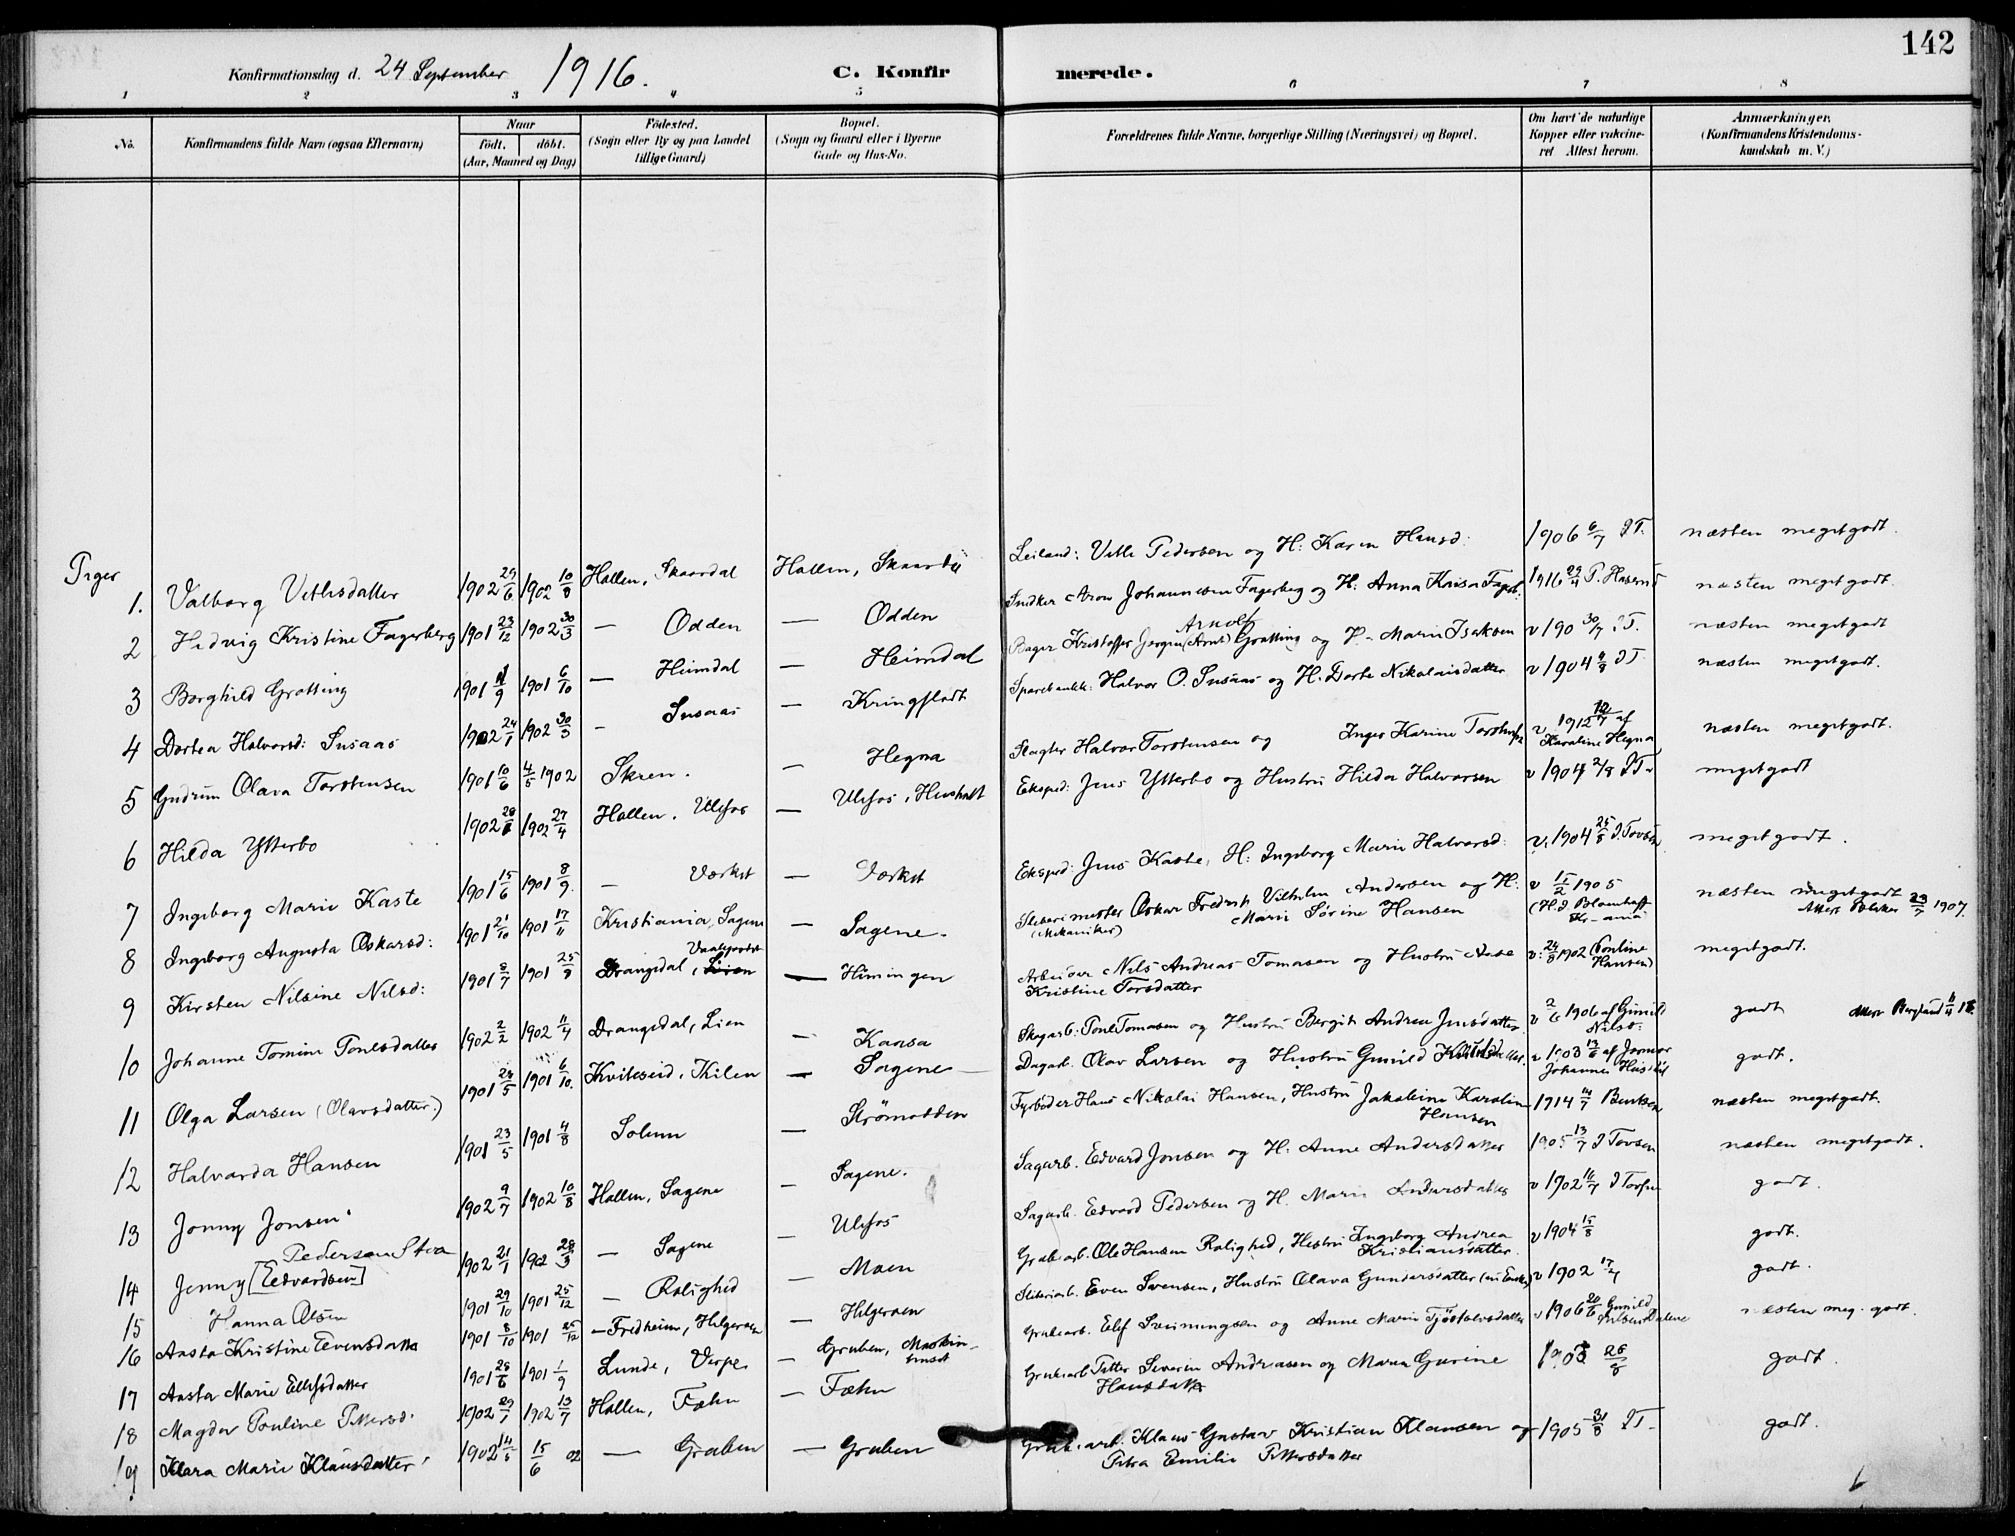 142
Konfirmationsdag d. 24 September 1916. C. Konfirmerede.
1 2 3 4 5 6 7 8
No. Konfirmandens fulde Navn (ogsaa Efternavn) Naar født. døbt. (Aar, Maaned og Dag) Fødested. (Sogn eller By og paa Landet tillige Gaard) Bopæl. (Sogn og Gaard eller i Byerne Gade og Hus-No. Forældrenes fulde Navne, borgerlige Stilling (Næringsvei) og Bopæl. Om havt de naturlige Kopper eller vakcineret Attest herom. Anmærkninger. (Konfirmandens Kristendomskundskab m. V.)
Piger
1. Valborg Vetlesdatter 1902 29/6 1902 10/8 Hollen, Skaardal Hollen, Vetle Pedersen og H: Karen Hansd: 1906 6/7 næsten megetgodt.
2 Hedvig Kristine Fagerberg 1901 23/12 1902 30/3 — Odden — Odden Snedker Aron Johannesen Fagerberg og H. Anna 1916 29/4 næsten megetgodt.
3 Borghild Grotting 1901 /9 1901 6/10 — Heimdal — Heimdal Bager Kristoffer Jørgen (Arnt) Arnolf Grotting og H- Marie Isaksen v 190 30/7 næsten megetgodt
4 Dortea Halvorsd: Susaas 1902 24/1 1902 30/3 — Susaas — Kringflodt Halvor O. Susaas og H. Dorte Nikolaisdatter v 1904 næsten megetgodt.
5 Gudrun Olava Torstensen 1901 10/6 4/5 1902 Skien. — Hegna Slagter Halvor Torstensen og Inger Karine v 1912 af Karoline Hegna næsten megetgodt.
6 Hilda Ytterbo 1902 1902 27/4 Hollen, Ulefos — Ulefos, Eksped: Jens Ytterbo og Hustru Hilda Halvorsen v 1904 2/8 megetgodt
7 Ingeborg Marie Kaste 1901 15/6 1901 8/9. — Værket — Værket Eksped: Jens Kaste, H: Ingeborg Marie Halvorsd: v. 1904 25/8 megetgodt.
8 Ingeborg Augusta Oskarsd: 1901 21/10 1901 17/11 Kristiania, Sagene — Sagene. Oskar Fredrik Vilhelm Andersen og H: (Mekaniker) Marie Sørine Hansen v 15/2 1905 næsten megetgodt 1907.
9 Kirsten Nilsine Nilsd: 1901 8/7 1901 25/9 Drangedal, — Himingen Arbeider Nils Andreas Tomasen og Hustru Aase Kristine Torsdatter v: 24/9 1902 (Pauline Hansen) megetgodt.
10 Johanne Tomine Tonesdatter 1902 2/2 1902 11/4 Drangedal, Lien — Kaasa Skogarb: Tone Tomasen og Hustru Bergit Andrea Jensdatter v 2/6 1906 af Gunild Nilsd. godt
11 Olga Larsen (Olavsdatter.) 1901 1901 6/10. Kviteseid, Kilen — Sagene Dagarb. Olav Larsen og Hustru Gunild v 1903 af godt.
12 Halvarda Hansen 1901 23/5 1901 4/8 Solum — Strømodden Fyrbøder Hans Nikolai Hansen, Hustru Jakobine Karoline Hansen 1914 14/7 næsten megetgodt.
13 Jenny Jonsen 1902 9/7 1902 10/8 Hollen, Sagene — Sagene. Sagarb. Edvard Jonsen og H. Anne Andersdatter 1905 13/7 næsten megetgodt.
14 Jenny [Edvardsen] Pedersen 1902 21/1 1902 28/3 — Sagene — Ulefos Sagarb. Edvard Pedersen og H. Marie Andersdatter v 1902 11/7 godt.
15 Hanna Olsen 1901 29/10 1901 25/12 — Rolighed — Moen Grubearb. Ole Hansen Rolighed, Hustru Ingeborg Andrea Kristiansdatter. v 1904 15/8 godt.
16 Aasta Kristine Evensdatter 1901 8/10 1901 — Fredheim, Helgeroen — Helgeroen Sliberiarb. Even Svensen, Hustru Olava Gundersdatter v 1902 godt.
17 Aasta Marie Elefsdatter 1901 28/6 1901 1/9 Lunde, Verpe — Gruben, Maskinhuset Grubearb. Elef Sveinungsen og Anne Marie v 1906 20/6 Gunild næsten meg. godt.
18 Magda Pouline Pettersd. 1902 29/1 1902 13/7 Hollen, Fæhn — Fæhn Grubearb Petter Severin Andreasen og Maren Gurine Hansdatter 1903 26/8 godt.
19 Klara Marie Klausdatter 1902 14/5 15/6 02 — Gruben — Gruben Grubearb. Klaus Gustav Kristian Klausen og Petra Emilie Pettersdatter 1905 31/8 godt.